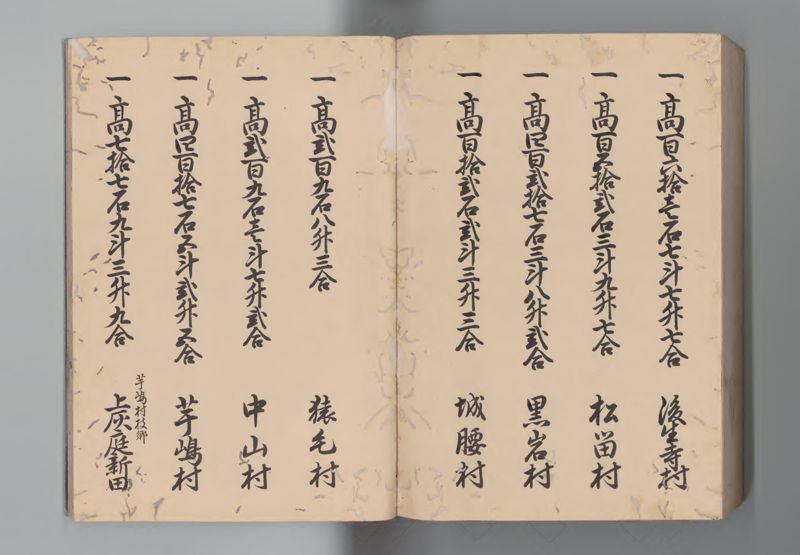 一 高百六拾壱石七斗七升七合 後生寺村
一 高百五拾弐石三斗九升七合 松留村
一 高四百弐拾七石三斗八升弐合 黒岩村
一 高百拾弐石弐斗三升三合 城腰村
一 高弐百九石八升三合 猿毛村
一 高弐百九石壱斗七升弐合 中山村
一 高四百拾七石五斗弐升五合 芋嶋村
一 高七拾七石九斗三升九合 芋嶋村枝郷 上灰庭新田